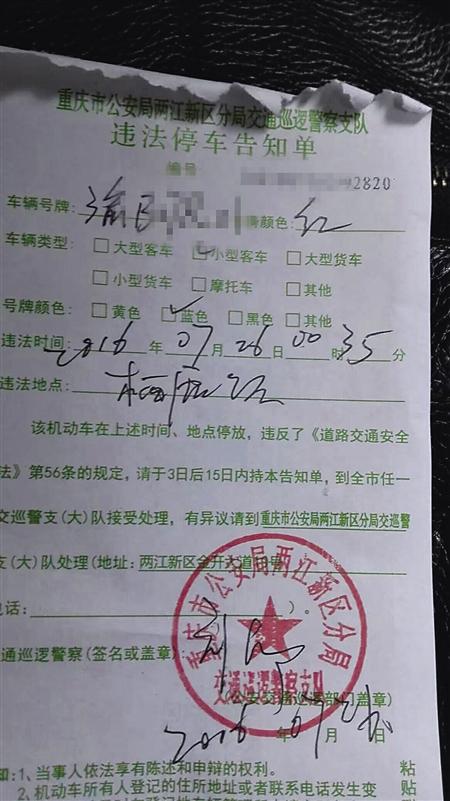 重庆市公安局两江新区分局交通巡逻警察支队
违法停车告知单
编号 92820
车辆号牌: 渝B 颜色: 红
车辆类型: □大型客车 小型客车 □大型货车
□小型货车 □摩托车 □其他
号牌颜色: □黄色 ☑蓝色 □黑色 □其他
违法时间: 2016 年 07 月 26 日 00 时 35 分
违法地点:
该机动车在上述时间、地点停放，违反了《道路交通安全
法》第56条的规定，请于3日后15日内持本告知单，到全市任一
交巡警支(大)队接受处理，有异议请到重庆市公安局两江新区分局交巡警
支(大)队处理(地址: 两江新区金开大道
电话: )。
通巡逻警察(签名或盖章):
重庆市公安局两江新区分局
交通巡逻警察支队
(公安交通巡逻部门盖章)
2016 年 07 月 26 日
知: 1、当事人依法享有陈述和申辩的权利。 粘
2、机动车所有人登记的住所地址或者联系电话发生变 贴